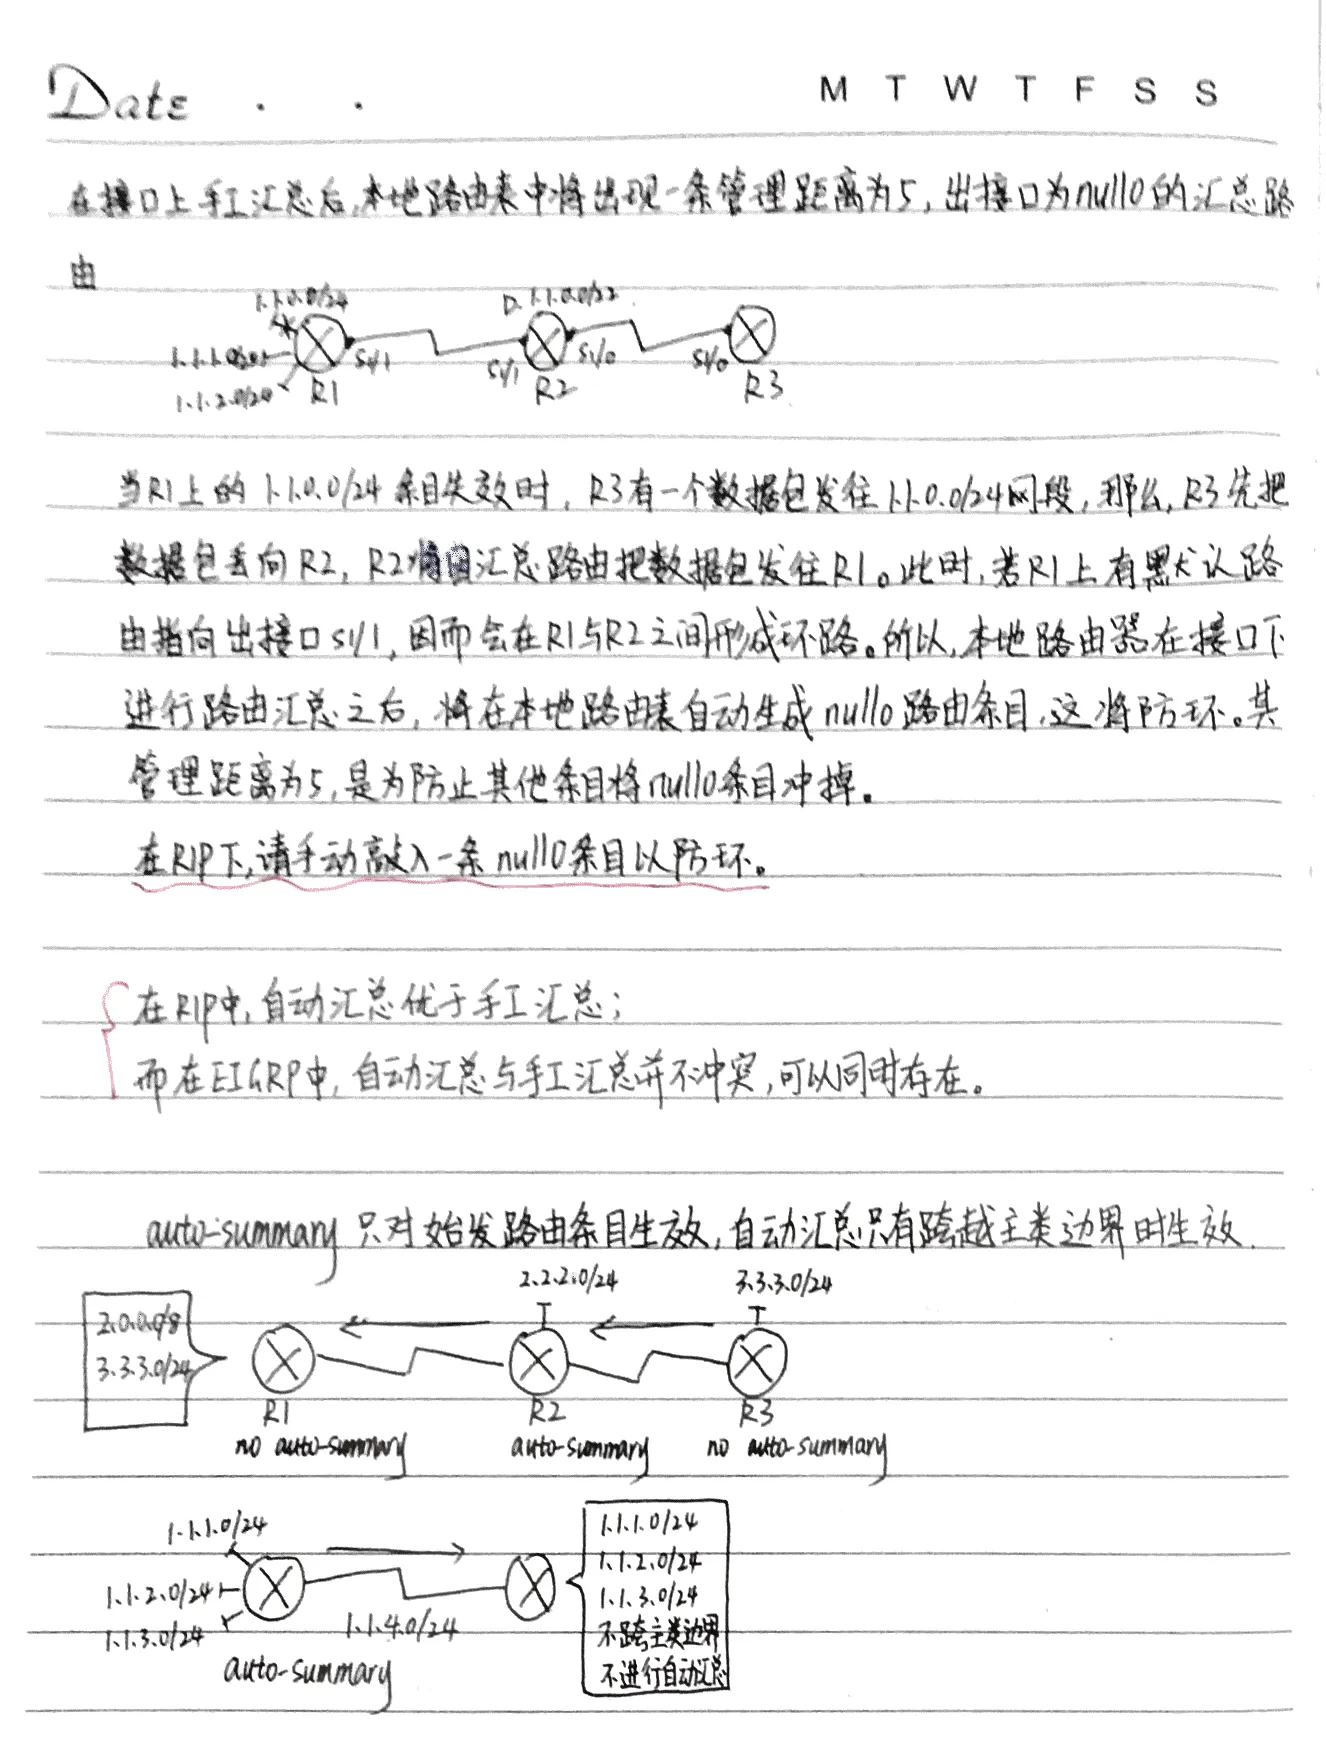 Date . . M T W T F S S
在接口上手工汇总后,本地路由表中将出现一条管理距离为5,出接口为null0的汇总路
由
1.1.0.0/24 D 1.1.0.0/22
1.1.1.0/24 S1/1 S1/1 S1/0 S1/0
1.1.2.0/24 R1 R2 R3
当R1上的1.1.0.0/24条目失效时,R3有一个数据包发往1.1.0.0/24网段,那么,R3先把
数据包丢向R2,R2将由汇总路由把数据包发往R1。此时,若R1上有默认路
由指向出接口s1/1,因而会在R1与R2之间形成环路。所以,本地路由器在接口下
进行路由汇总之后,将在本地路由表自动生成null0路由条目,这将防环。其
管理距离为5,是为防止其他条目将null0条目冲掉。
在RIP下,请手动敲入一条null0条目以防环。
在RIP中,自动汇总优于手工汇总;
而在EIGRP中,自动汇总与手工汇总并不冲突,可以同时存在。
auto-summary 只对始发路由条目生效,自动汇总只有跨越主类边界时生效.
2.2.2.0/24 3.3.3.0/24
2.0.0.0/8
3.3.3.0/24
R1 R2 R3
no auto-summary auto-summary no auto-summary
1.1.1.0/24 1.1.1.0/24
1.1.2.0/24 1.1.2.0/24
1.1.3.0/24 1.1.4.0/24 1.1.3.0/24
不跨主类边界
auto-summary 不进行自动汇总